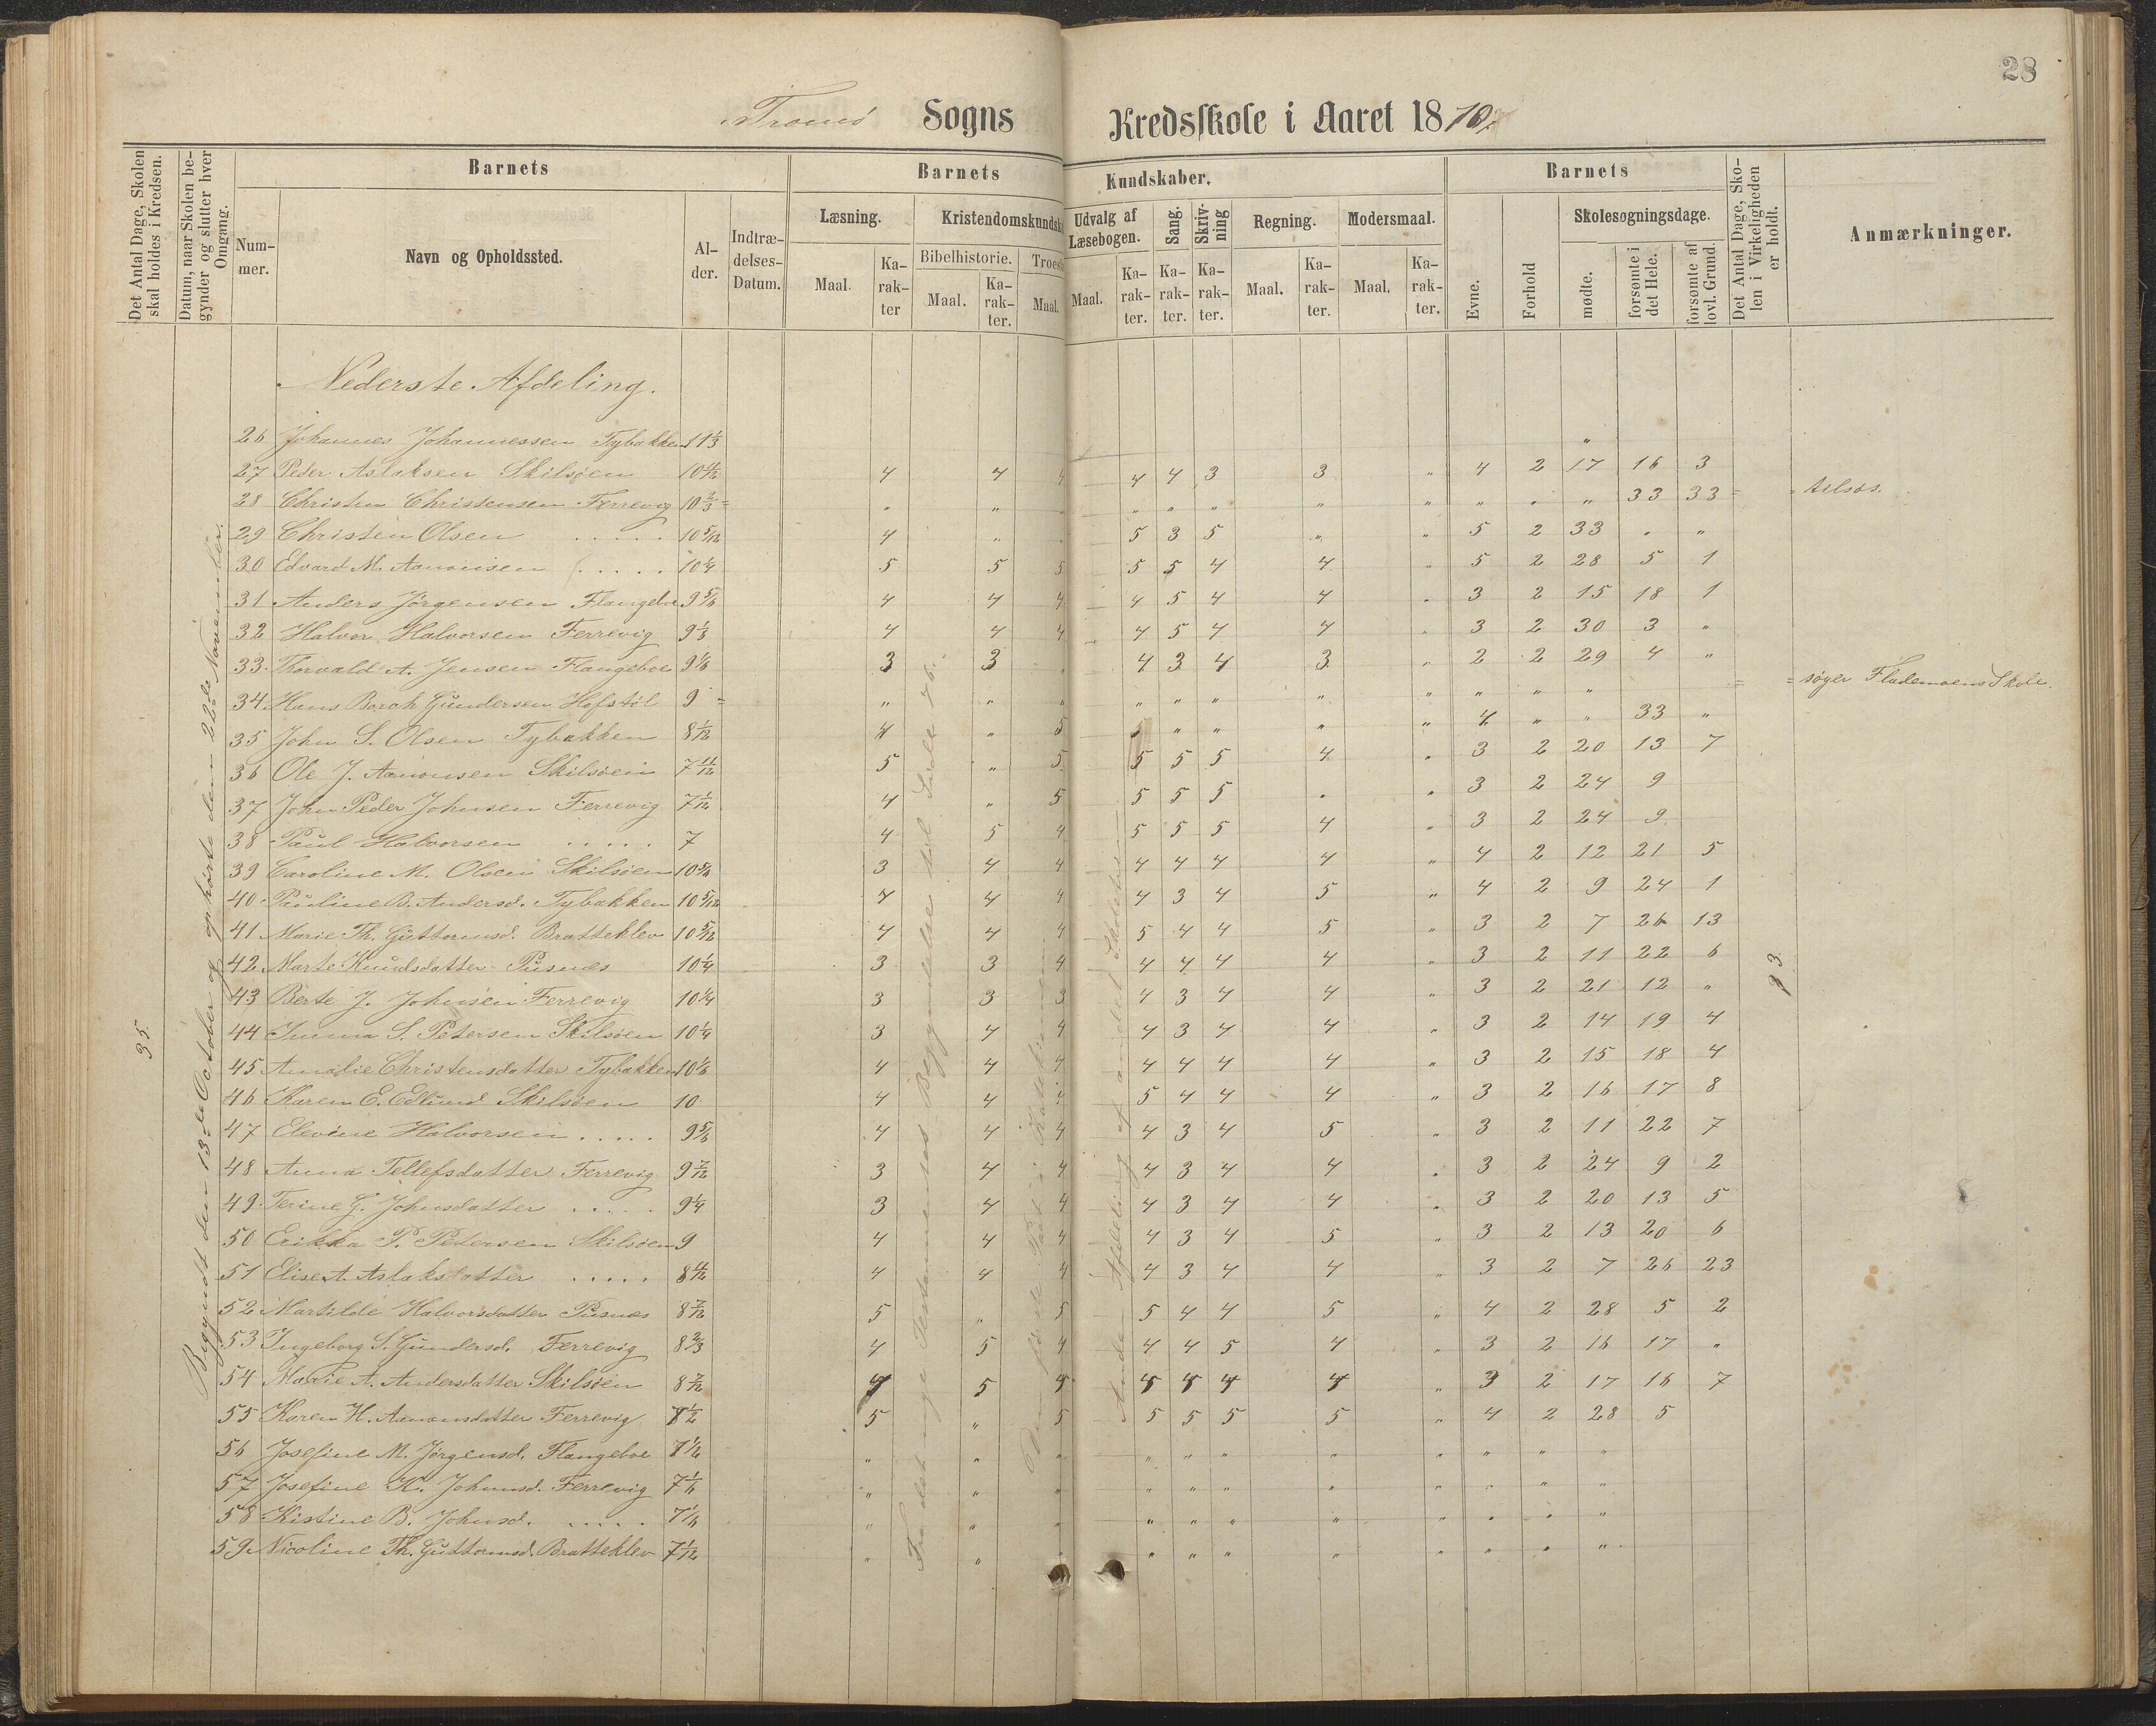 28
Tromø Sogns Kredsskole i Aaret 1870.
Det Antal Dage, Skolen skal holdes i Kredsen.
Datum, naar Skolen begynder og slutter hver Omgang.
Barnets
Nummer.
Navn og Opholdssted.
Alder.
Indtrædelses-Datum.
Barnets Kundskaber.
Læsning.
Maal.
Karakter
Kristendomskundsk
Bibelhistorie.
Maal.
Karakter.
Troes
Maal.
Udvalg af Læsebogen.
Maal.
Karakter.
Sang.
Karakter.
Skrivning
Karakter.
Regning.
Maal.
Karakter.
Modersmaal.
Maal.
Karakter.
Barnets
Evne.
Forhold
Skolesøgningsdage.
mødte.
forsømte i det Hele.
forsømte af lovl. Grund.
Det Antal Dage, Skolen i Virkeligheden er holdt.
Anmærkninger.
Nederste Afdeling.
35
Begyndt den 13de October og ophørte den 22de November.
Fra det nye Testamentes Begyndelse til Side 76.
Anden Afdeling af andet Skoletrin
33
26 Johannes Johannessen Tybakken 11 1/3 "
27 Peder Aslaksen Skilsøen 10 4/12 4 4 4 4 4 3 3 " 4 2 17 16 3
28 Christen Christensen Ferrevig 10 2/3 = " " " " " " " " " " 33 33 = = tilsøs.
29 Christen Olsen ..... 10 5/12 4 " " 5 3 5 " " 5 2 33 " "
30 Edvard M. Aanonsen ..... 10 1/4 5 5 5 5 5 4 4 " 5 2 28 5 1
31 Anders Jørgensen Flangeboe 9 5/6 4 4 4 4 5 4 4 " 3 2 15 18 1
32 Halvor Halvorsen Ferrevig 9 1/3 4 4 4 4 5 4 4 " 3 2 30 3 "
33 Thorvald A. Jensen Flangeboe 9 1/6 3 3 " 4 3 4 3 " 2 2 29 4 "
34 Hans Borch Gundersen Hofstöl 9 = " " " " " " " " " " " = = søger Flademoens Skole.
35 John S. Olsen Tybakken 8 1/12 4 " 5 5 " " " " 4 " " 33 "
36 Ole J. Aanonsen Skilsøen 7 11/12 5 " 5 5 5 5 4 " 3 2 20 13 7
37 John Peder Johnsen Ferrevig 7 1/12 4 " 5 5 5 5 " " 3 2 24 9
38 Paul Halvorsen ..... 7 4 5 4 5 5 5 4 " 3 2 24 9
39 Caroline M. Olsen Skilsøen 10 5/6 3 4 4 4 4 4 4 " 4 2 12 21 5
40 Pauline B. Andersd. Tybakken 10 5/12 4 4 4 4 3 4 5 " 4 2 9 24 1
41 Marie Th. Guttormsd. Bratteklev 10 5/12 4 4 4 5 4 4 5 " 3 2 7 26 13
42 Marte Knudsdatter Pusnæs 10 1/4 3 3 4 4 4 4 4 " 3 2 11 22 6
43 Berte J. Johnsen Ferrevig 10 1/4 3 3 3 4 3 4 4 " 3 2 21 12 "
44 Imma S. Petersen Skilsøen 10 1/4 3 4 4 4 3 4 4 " 3 2 14 19 4
45 Amalie Christensdatter Tybakken 10 1/6 4 4 4 4 4 4 4 " 3 2 15 18 4
46 Karen E. Edlund Skilsøen 10 4 4 4 5 4 4 4 " 3 2 16 17 8
47 Elevine Halvorsen ..... 9 5/6 4 4 4 4 3 4 5 " 3 2 11 22 7
48 Anna Tellefsdatter Ferrevig 9 7/12 3 4 4 4 3 4 4 " 3 2 24 9 2
49 Terine G. Johnsdatter ..... 9 1/4 3 4 4 4 3 4 4 " 3 2 20 13 5
50 Erikka P. Petersen Skilsøen 9 4 4 4 4 3 4 5 " 3 2 13 20 6
51 Elise A. Aslaksdatter ..... 8 4/12 4 4 4 4 3 4 4 " 3 2 7 26 23
52 Martilde Halvorsdatter Pusnæs 8 7/12 5 " 5 5 4 4 5 " 4 2 28 5 2
53 Ingeborg S. Gundersd. Ferrevig 8 2/3 4 5 4 4 4 5 4 " 3 2 16 17 "
54 Marie A. Andersdatter Skilsøen 8 7/12 4 5 4 4 4 4 4 " 3 2 17 16 7
55 Karen H. Aanonsdatter Ferrevig 7 1/2 5 " 5 5 5 5 5 " 4 2 28 5
56 Josefine M. Jørgensd. Flangeboe 7 1/2 " " " " " " " " " " "
57 Josefine K. Johnsd. Ferrevig 7 1/6 " " " " " " " " " " "
58 Kistine B. Johnsd. ..... 7 1/6 " " " " " " " " " " "
59 Nicoline Th. Guttormsd. Bratteklev 7 1/12 " " " " " " " " " " "